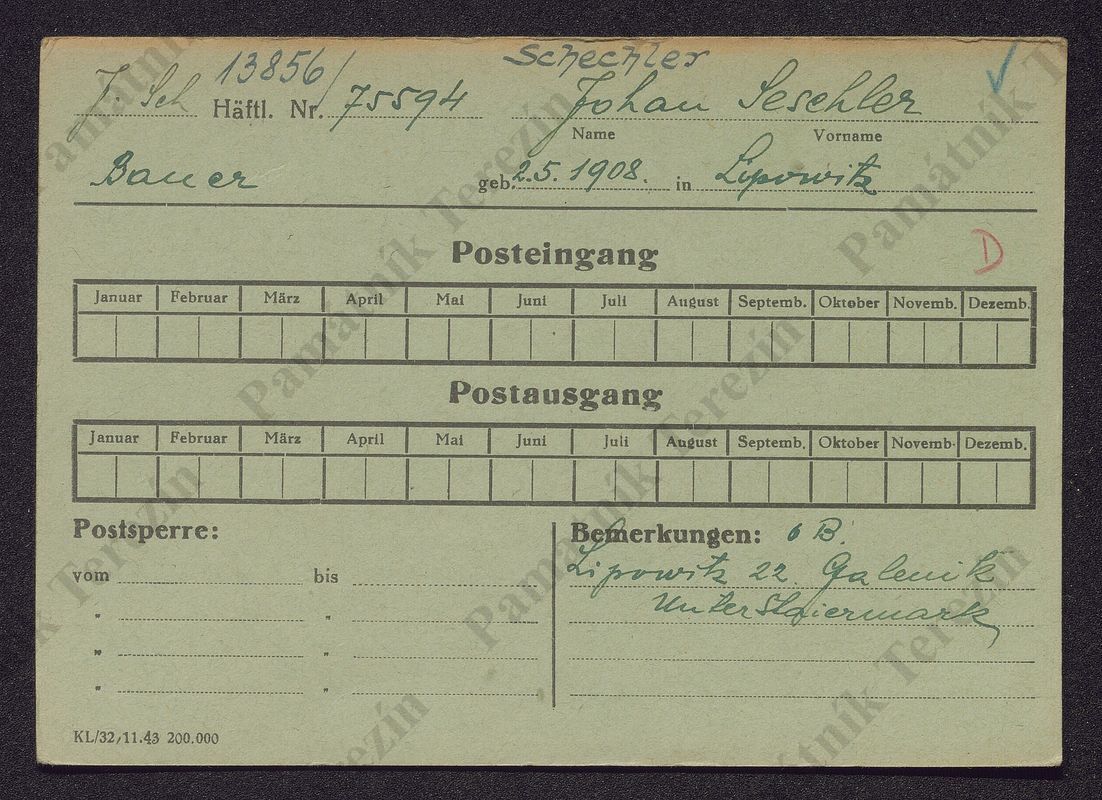 13856/ Schechler
J. Sch Häftl. Nr. 75594 Johan Seschler
Name Vorname
Bauer geb. 2.5.1908. in Lipowitz
Posteingang D
Januar Februar März April Mai Juni Juli August Septemb. Oktober Novemb. Dezemb.
Postausgang
Januar Februar März April Mai Juni Juli August Septemb. Oktober Novemb. Dezemb.
Postsperre: Bemerkungen: 6 B.
vom bis Lipowitz 22. Galenik
" " Untersteiermark
" "
" "
KL/32/11.43 200.000
Památník Terezín